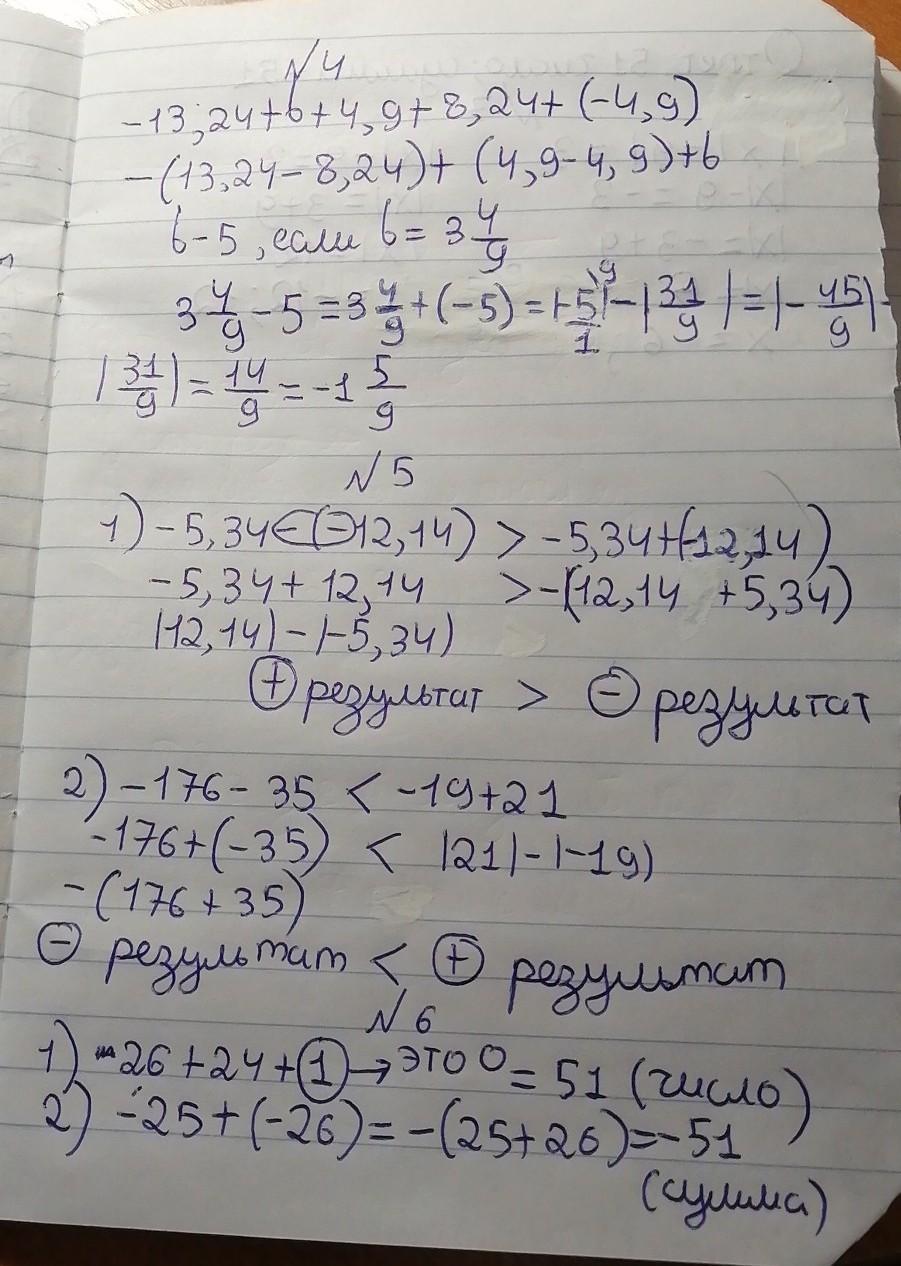 №4
-13,24+b+4,9+8,24+(-4,9)
-(13,24-8,24)+(4,9-4,9)+b
b-5, если b=3 4/9
3 4/9 - 5 = 3 4/9 + (-5) = |-5/1|⁾⁹ - |31/9| = |-45/9| -
|31/9| = 14/9 = -1 5/9
№5
1) -5,34-(-12,14) > -5,34+(-12,14)
-5,34+12,14 > -(12,14 +5,34)
|12,14|-|-5,34|
⊕ результат > ⊖ результат
2) -176-35 < -19+21
-176+(-35) < |21|-|-19|
-(176+35)
⊖ результат < ⊕ результат
№6
1) -26+24+① → это 0 = 51 (число)
2) -25+(-26)=-(25+26)=-51
(сумма)